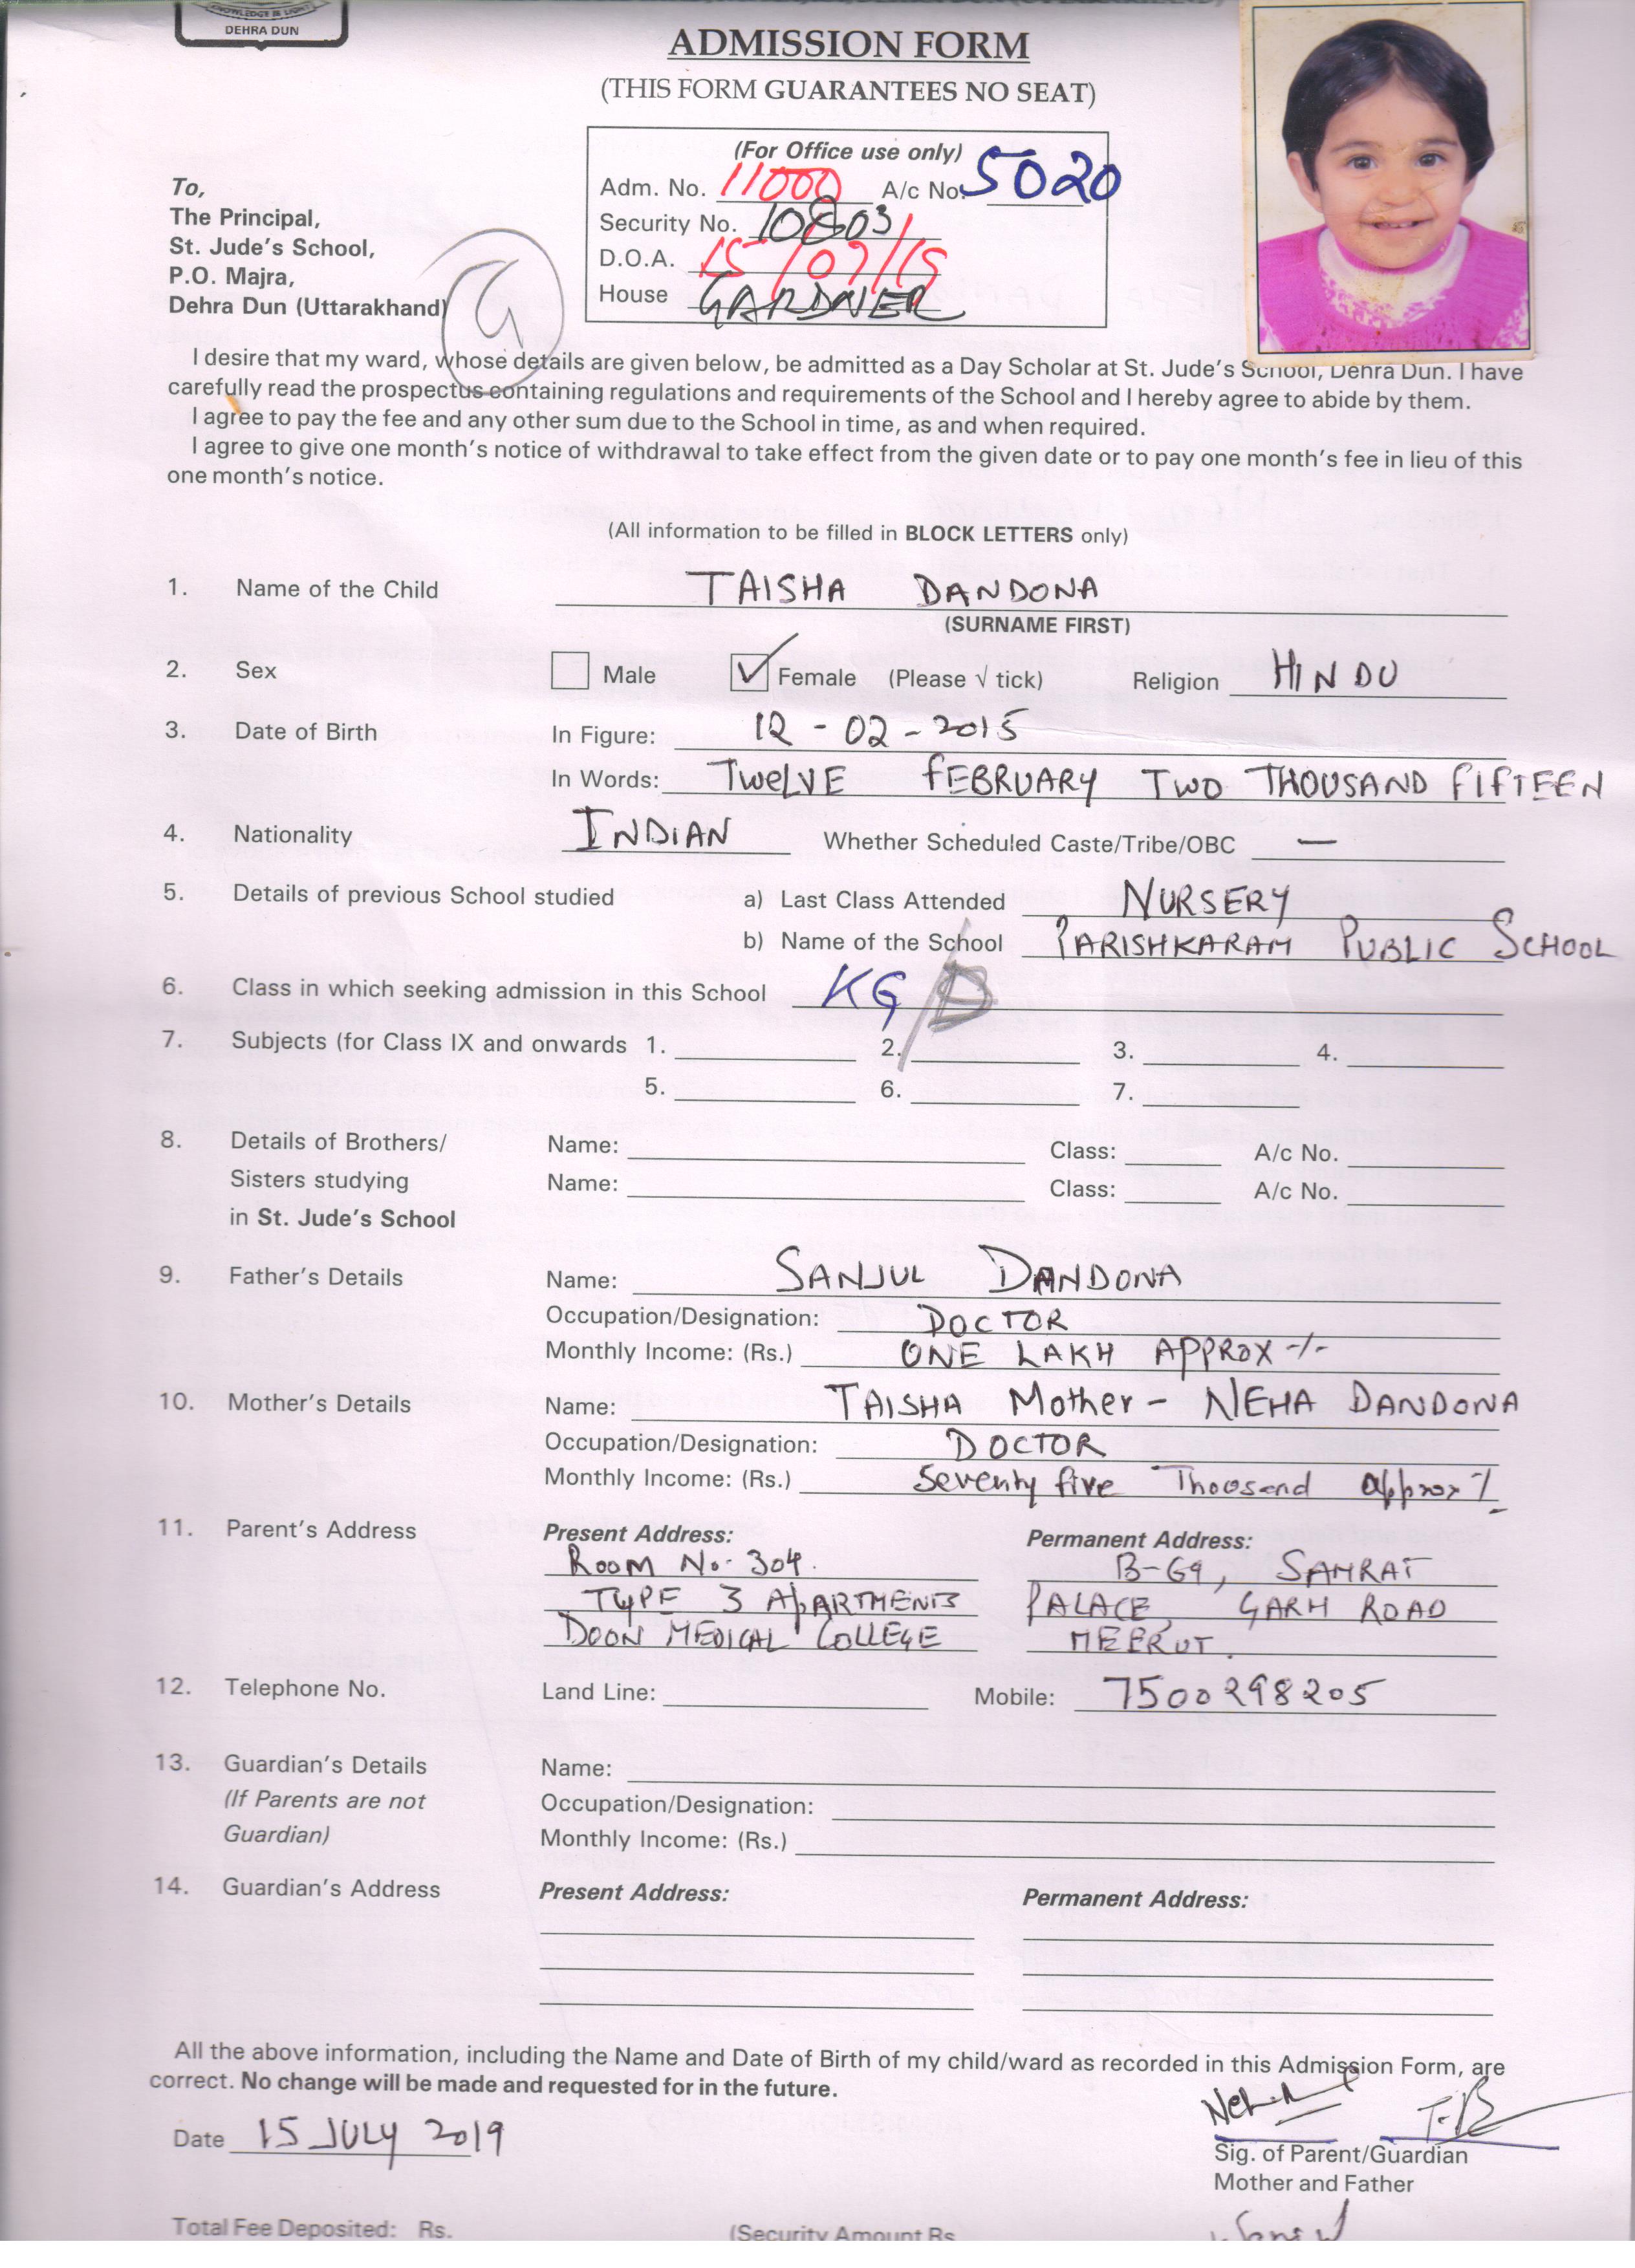 KNOWLEDGE IS LIGHT
DEHRA DUN
ADMISSION FORM
(THIS FORM GUARANTEES NO SEAT)
(For Office use only)
Adm. No. 11000 A/c No. 5020
Security No. 10803
D.O.A. 15/07/19
House GARDNER
To,
The Principal,
St. Jude's School,
P.O. Majra,
Dehra Dun (Uttarakhand)
G
I desire that my ward, whose details are given below, be admitted as a Day Scholar at St. Jude's School, Dehra Dun. I have
carefully read the prospectus containing regulations and requirements of the School and I hereby agree to abide by them.
I agree to pay the fee and any other sum due to the School in time, as and when required.
I agree to give one month's notice of withdrawal to take effect from the given date or to pay one month's fee in lieu of this
one month's notice.
(All information to be filled in BLOCK LETTERS only)
1. Name of the Child TAISHA DANDONA
(SURNAME FIRST)
2. Sex Male ✓ Female (Please √ tick) Religion HINDU
3. Date of Birth In Figure: 12 - 02 - 2015
In Words: TWeLVE FEBRUARY TWO THOUSAND FIFTEEN
4. Nationality INDIAN Whether Scheduled Caste/Tribe/OBC —
5. Details of previous School studied a) Last Class Attended NURSERY
b) Name of the School PARISHKARAM PUBLIC SCHOOL
6. Class in which seeking admission in this School KG / B
7. Subjects (for Class IX and onwards 1. 2. 3. 4.
5. 6. 7.
8. Details of Brothers/ Name: Class: A/c No.
Sisters studying Name: Class: A/c No.
in St. Jude's School
9. Father's Details Name: SANJUL DANDONA
Occupation/Designation: DOCTOR
Monthly Income: (Rs.) ONE LAKH APPROX -/-
10. Mother's Details Name: TAISHA Mother - NEHA DANDONA
Occupation/Designation: DOCTOR
Monthly Income: (Rs.) Seventy five Thousand approx /-
11. Parent's Address Present Address: Permanent Address:
ROOM No. 304. B-69, SAMRAT
TYPE 3 APARTMENTS PALACE, GARH ROAD
DOON MEDICAL COLLEGE MEERUT.
12. Telephone No. Land Line: Mobile: 7500298205
13. Guardian's Details Name:
(If Parents are not Occupation/Designation:
Guardian) Monthly Income: (Rs.)
14. Guardian's Address Present Address: Permanent Address:
All the above information, including the Name and Date of Birth of my child/ward as recorded in this Admission Form, are
correct. No change will be made and requested for in the future.
Date 15 JULY 2019
Sig. of Parent/Guardian
Mother and Father
Total Fee Deposited: Rs. (Security Amount Rs